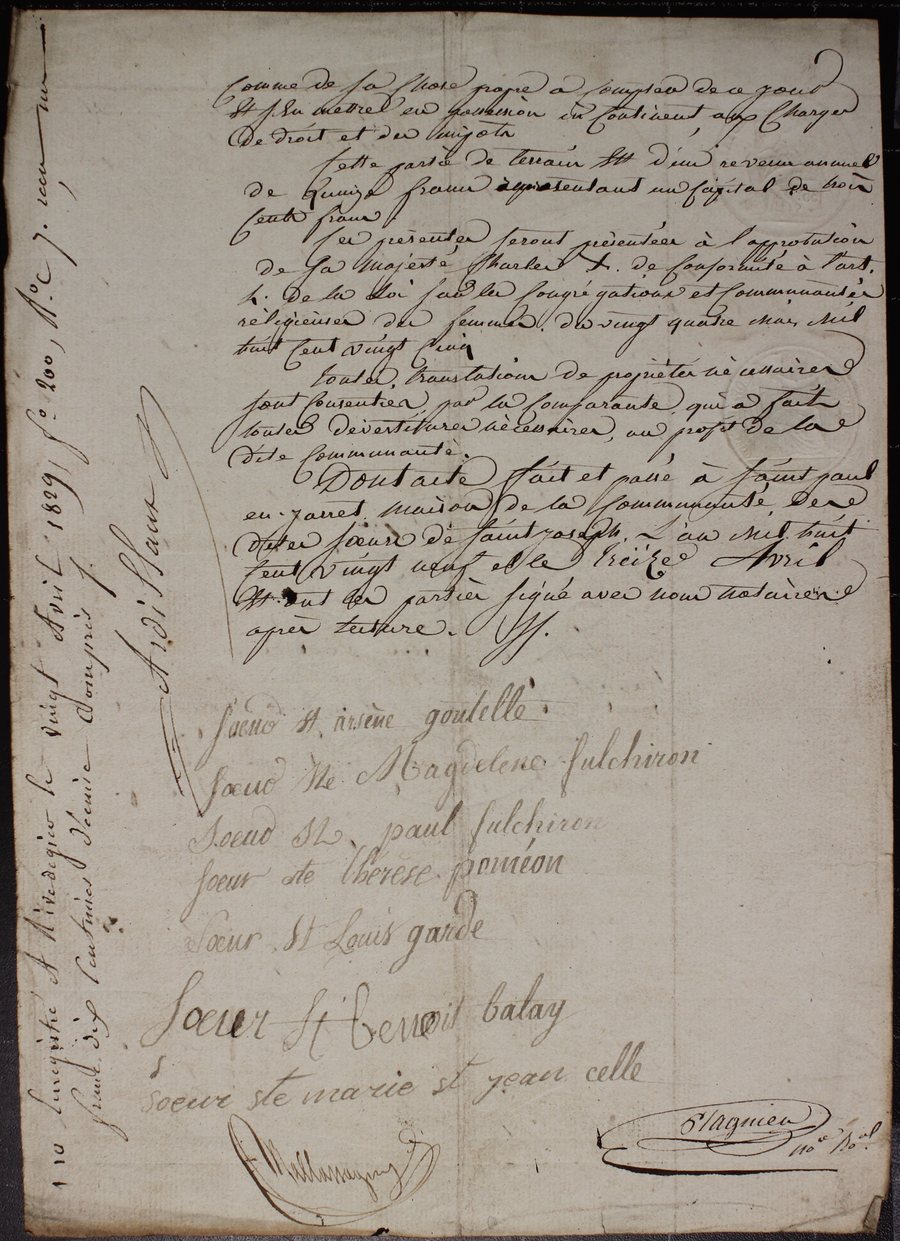 Comme de sa chose propre à compter de ce jour
et s'en mettre en possession incontinent aux charges
de droit et des impots
Cette partie de terrain est d'un revenu annuel
de quinze francs représentant un capital de trois
cents francs
Les présentes seront présentées à l'approbation
de Sa Majesté Charles X. de conformité à l'art.
4. de la loi sur les Congrégations et Communautés
religieuses des femmes, du vingt quatre mai mil
huit cent vingt cinq
toutes translations de propriétés nécessaires
sont consenties par la Comparante, qui a fait
toutes dévestitures nécessaires, au profit de la
dite Communauté.
Dont acte fait et passé à Saint paul
en-jarret, maison de la Communauté, des
dites sœurs de Saint joseph. L'an mil huit
cent vingt neuf et le treize Avril
Et ont les parties signé avec nous notaire
après lecture.
Soeur St. arsène goutelle
Sœur Ste Magdelene fulchiron
Soeur St. paul fulchiron
soeur ste thérèse poméon
Sœur St Louis garde
Sœur St benoit balay
soeur ste marie st jean celle
Enregistré à Rivedegier le vingt Avril 1829, f° 200, R° C 7. reçu un
franc dix centimes décime compris